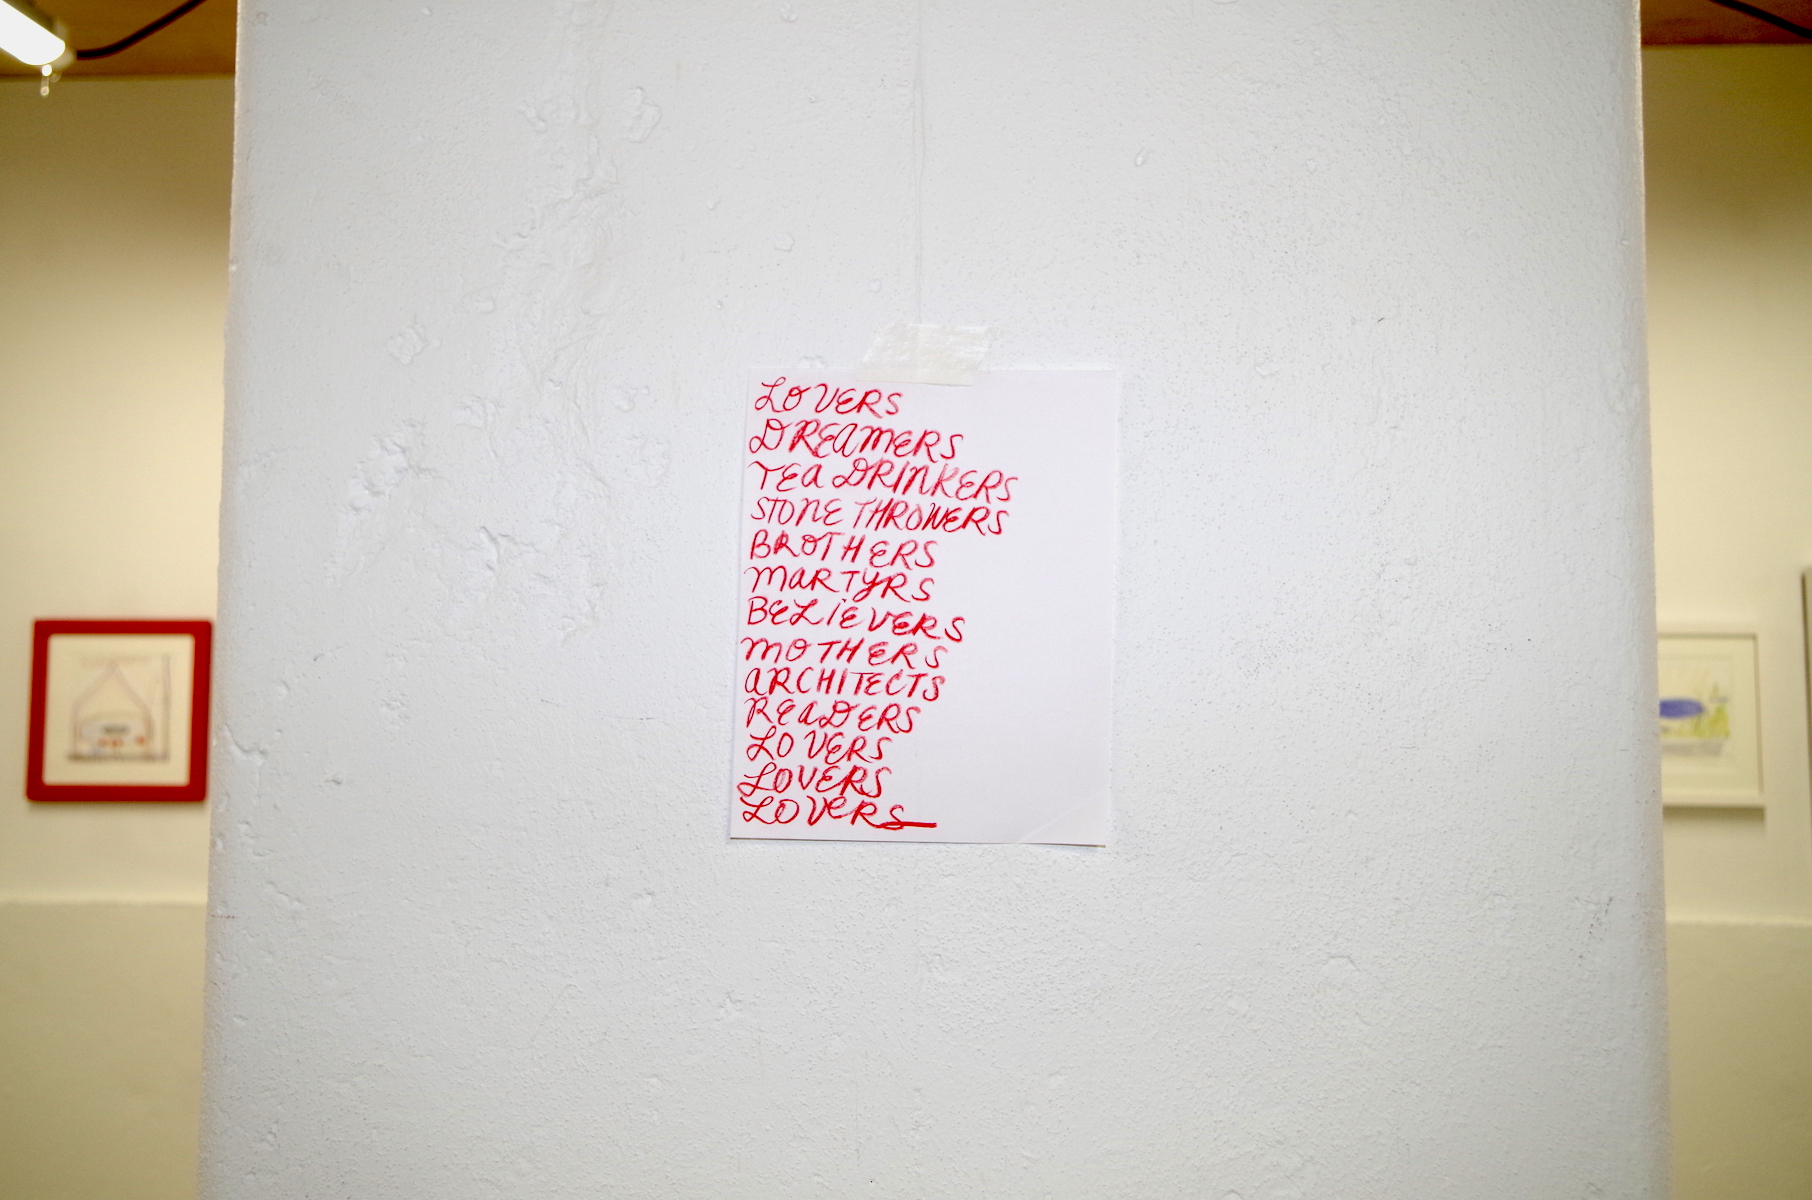 LOVERS
DREAMERS
TEA DRINKERS
STONE THROWERS
BROTHERS
MARTYRS
BELIEVERS
MOTHERS
ARCHITECTS
READERS
LOVERS
LOVERS
LOVERS